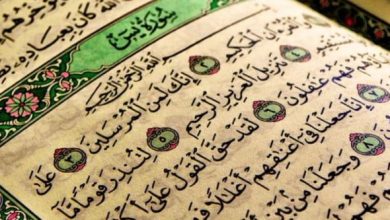 الله كان بعباده
سُورَةُ يسٓ
وَالْقُرْءَانِ الْحَكِيمِ ٢ إِنَّكَ لَمِنَ الْمُرْسَلِينَ ٣ عَلَىٰ
تَنزِيلَ الْعَزِيزِ الرَّحِيمِ ٥ لِتُنذِرَ قَوْمًا مَّا
فَهُمْ غَٰفِلُونَ ٦ لَقَدْ حَقَّ الْقَوْلُ عَلَىٰ
إِنَّا جَعَلْنَا فِي أَعْنَٰقِهِمْ أَغْلَٰلًا
٨ وَجَعَلْنَا مِن بَيْنِ